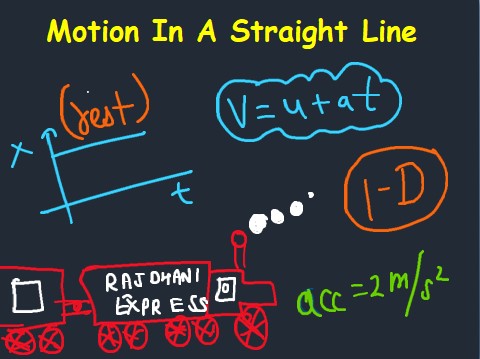 Motion In A Straight Line
(rest)
V=u+at
x
t
1-D
RAJDHANI
EXPRESS
acc=2m/s²